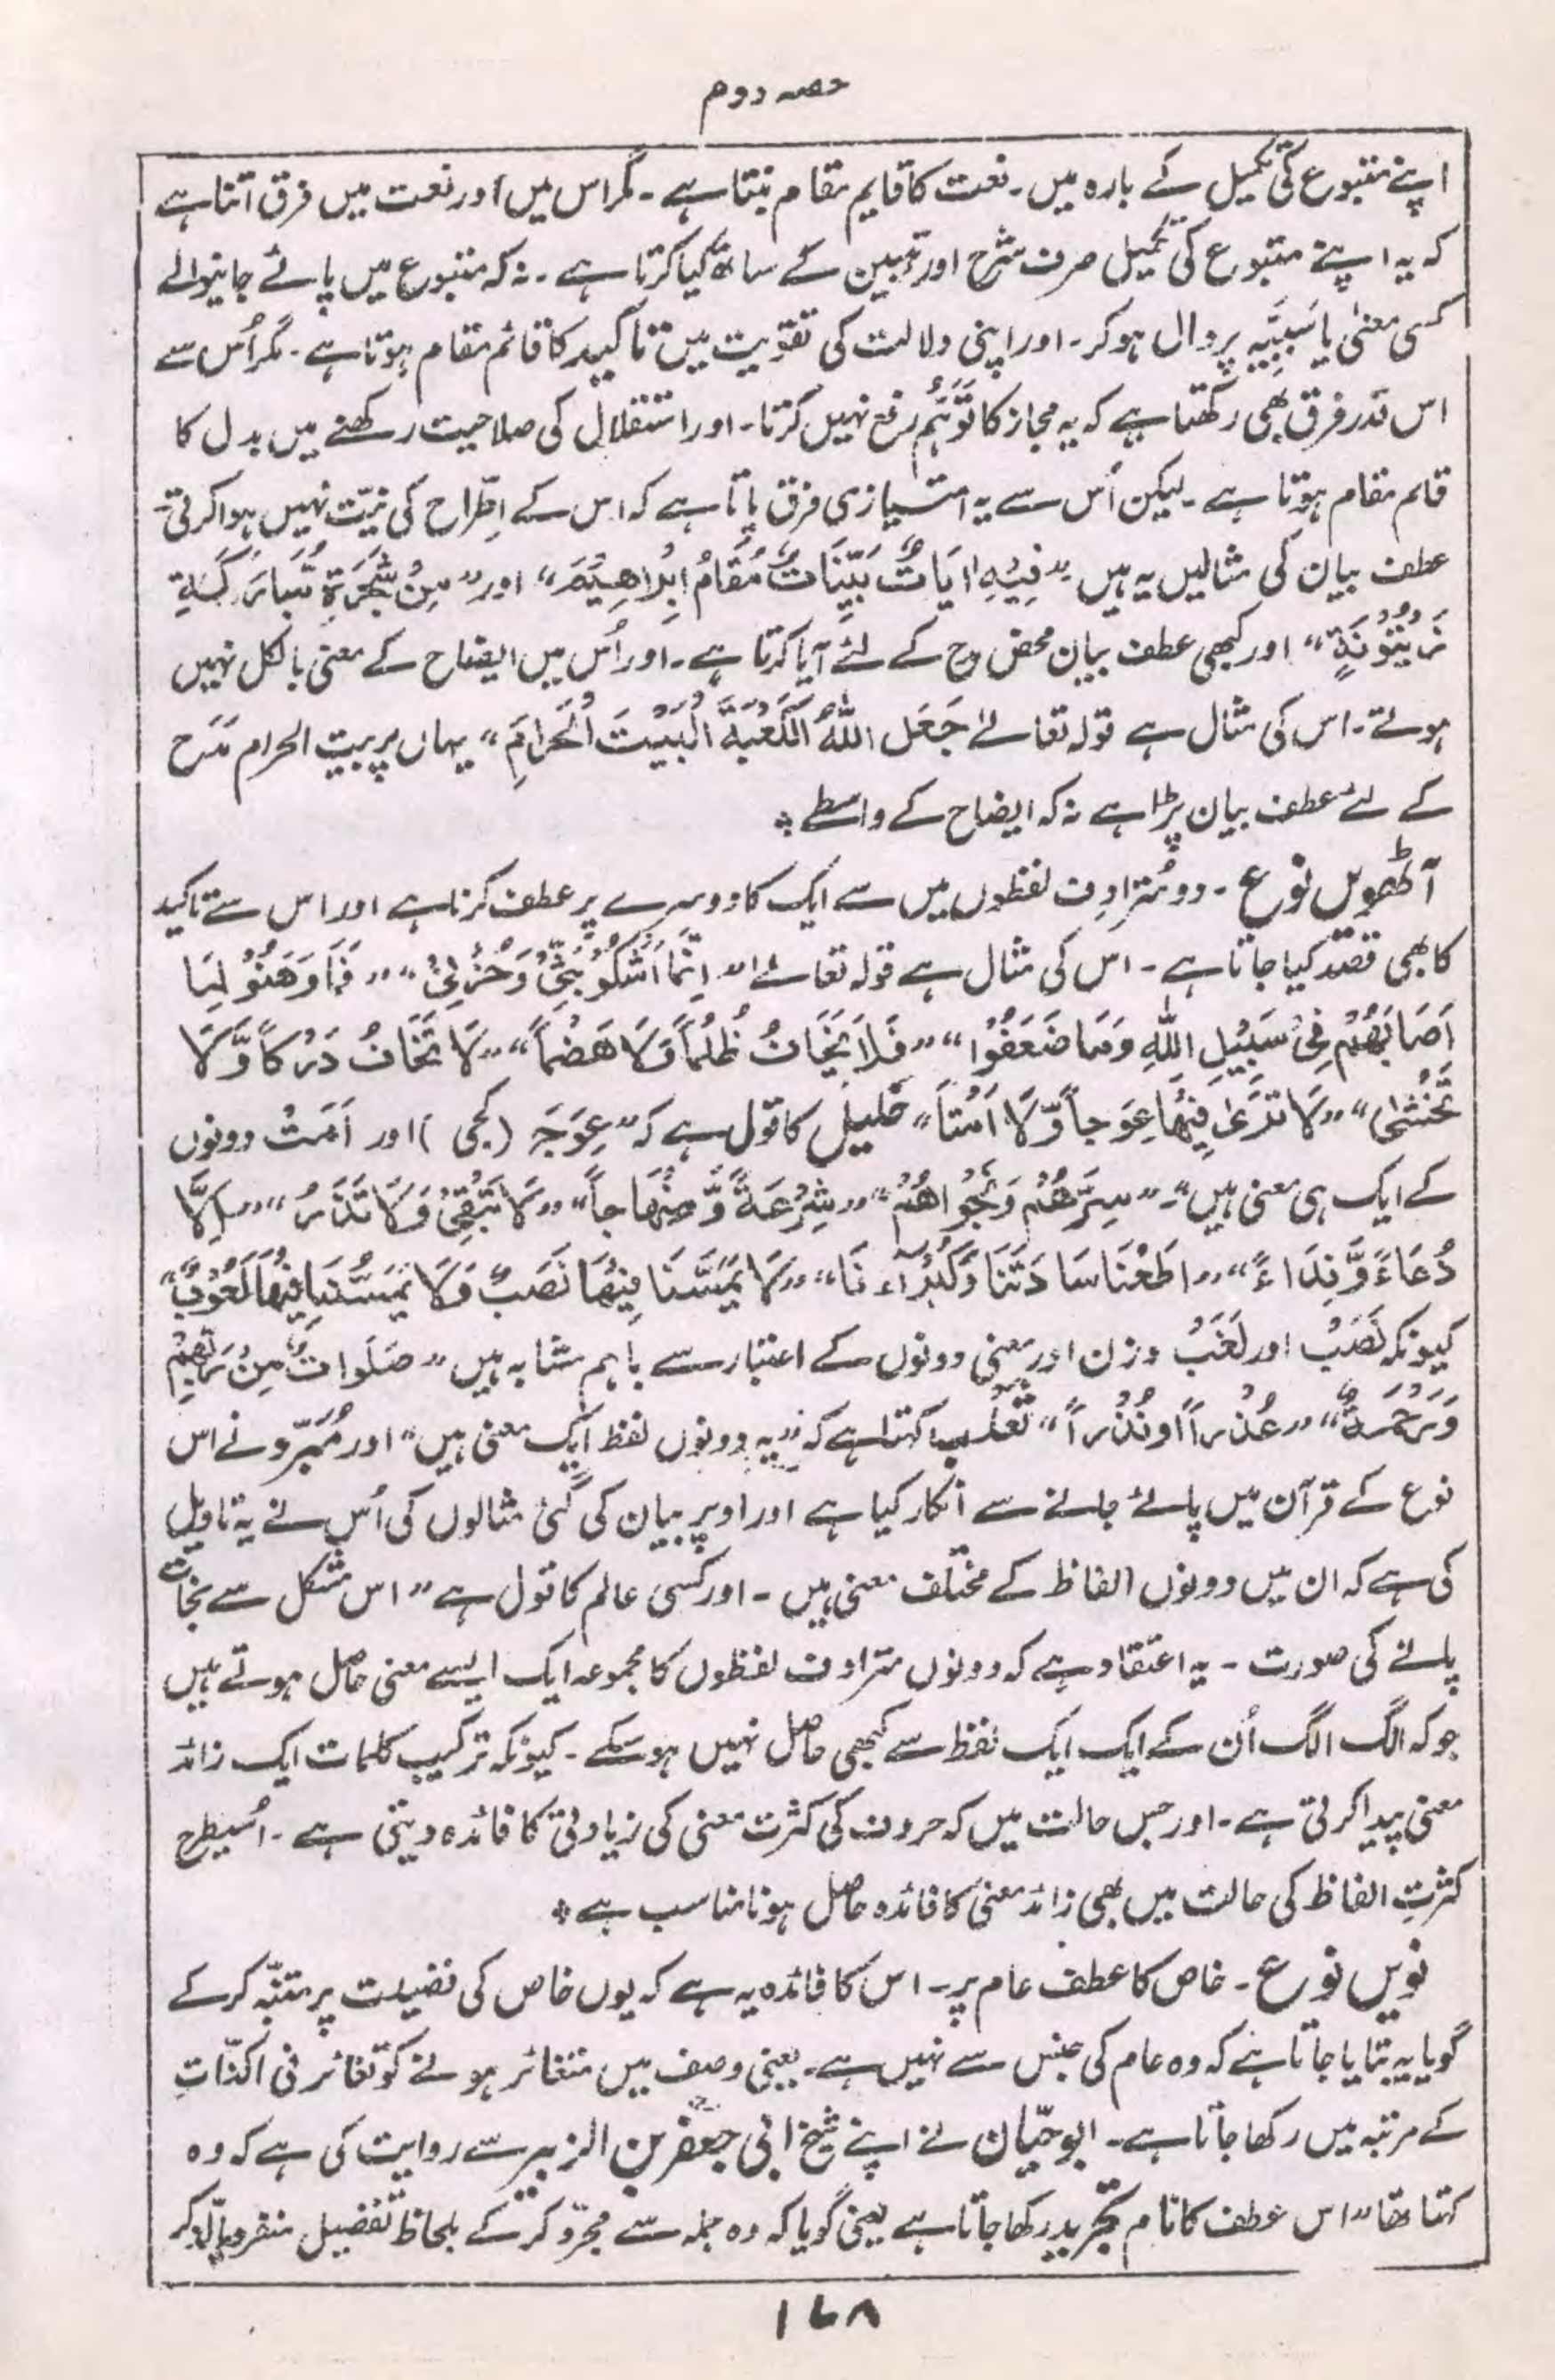 حصہ دوم
اپنے متبوع کی تکمیل کے بارہ میں۔ نعت کا قایم مقام بنتا ہے۔ مگر اس میں اور نعت میں فرق اتنا ہے
کہ یہ اپنے متبوع کی تکمیل صرف شرح اور تبیین کے ساتھ کیا کرتا ہے۔ نہ کہ متبوع میں پائے جانیوالے
کسی معنیٰ یا سَبَبِیَّہ پر دال ہو کر۔ اور اپنی دلالت کی تقویت میں تاکید کا قائم مقام ہوتا ہے۔ مگر اُس سے
اس قدر فرق بھی رکھتا ہے کہ یہ مجاز کا تَوَہُّم رفع نہیں کرتا۔ اور استقلال کی صلاحیت رکھنے میں بدل کا
قائم مقام ہوتا ہے۔ لیکن اُس سے یہ امتیازی فرق پاتا ہے کہ اس کے اِطّراح کی نیّت نہیں ہوا کرتی۔
عطف بیان کی مثالیں یہ ہیں ”فِیْہِ اٰیَاتٌ بَیِّنَاتٌ مَّقَامُ اِبْرَاھِیْمَ“ اور ”مِنْ شَجَرَۃٍ مُّبَارَکَۃٍ
زَیْتُوْنَۃٍ“ اور کبھی عطف بیان محض مدح کے لئے آیا کرتا ہے۔ اور اُس میں ایضاح کے معنی بالکل نہیں
ہوتے۔ اس کی مثال ہے قولہ تعالےٰ جَعَلَ اللّٰہُ الْکَعْبَۃَ الْبَیْتَ الْحَرَامَ“ یہاں پر بیت الحرام مَدح
کے لئے عطف بیان پڑا ہے نہ کہ ایضاح کے واسطے ؞
آٹھویں نوع۔ دو مُترادِف لفظوں میں سے ایک کا دوسرے پر عطف کرنا ہے اور اس سے تاکید
کا بھی قصد کیا جاتا ہے۔ اس کی مثال ہے قولہ تعالےٰ ”اِنَّمَا اَشْکُوْ بَثِّیْ وَحُزْنِیْ“ ”فَمَا وَھَنُوْا لِمَا
اَصَابَھُمْ فِیْ سَبِیْلِ اللّٰہِ وَمَا ضَعَفُوْا“ ”فَلَا یَخَافُ ظُلْمًا وَّلَا ھَضْمًا“ ”لَا تَخَافُ دَرَکًا وَّلَا
تَخْشٰی“ ”لَا تَرَیٰ فِیْھَا عِوَجًا وَّلَا اَمْتًا“ خلیل کا قول ہے کہ ”عِوَجَ (کجی) اور اَمَتْ دونوں
کے ایک ہی معنی ہیں“۔ ”سِرَّھُمْ وَنَجْوَاھُمْ“ ”شِرْعَۃً وَّ مِنْھَاجًا“ ”لَا تُبْقِیْ وَلَا تَذَرُ“ ”اِلَّا
دُعَاءً وَّنِدَاءً“ ”اَطَعْنَا سَادَتَنَا وَکُبَرَآءَنَا“ ”لَا یَمَسُّنَا فِیْھَا نَصَبٌ وَّلَا یَمَسُّنَا فِیْھَا لُغُوْبٌ“
کیونکہ نَصَبْ اور لَغَبْ وزن اور معنی دونوں کے اعتبار سے باہم مشابہ ہیں ”صَلَوَاتٌ مِّنْ رَّبِّھِمْ
وَرَحْمَۃٌ“ ”عُذْرًا اَوْ نُذْرًا“ ثَعْلَب کہتا ہے کہ ”یہ دونوں لفظ ایک معنی ہیں“ اور مُبَرِّد نے اس
نوع کے قرآن میں پائے جانے سے انکار کیا ہے اور اوپر بیان کی گئی مثالوں کی اُس نے یہ تاویل
کی ہے کہ ان میں دونوں الفاظ کے مختلف معنی ہیں۔ اور کسی عالم کا قول ہے ”اس مشکل سے نجات
پانے کی صورت۔ یہ اعتقاد ہے کہ دونوں مترادف لفظوں کا مجموعہ ایک ایسے معنی حاصل ہوتے ہیں
جو کہ الگ الگ اُن کے ایک ایک لفظ سے کبھی حاصل نہیں ہو سکے۔ کیونکہ ترکیب کلمات ایک زائد
معنی پیدا کرتی ہے۔ اور جس حالت میں کہ حروف کی کثرت معنی کی زیادتی کا فائدہ دیتی ہے۔ اُسیطرح
کثرتِ الفاظ کی حالت میں بھی زائد معنی کا فائدہ حاصل ہونا مناسب ہے ؞
نویں نوع۔ خاص کا عطف عام پر۔ اس کا فائدہ یہ ہے کہ یوں خاص کی فضیلت پر متنبّہ کر کے
گویا یہ بتایا جاتا ہے کہ وہ عام کی جنس سے نہیں ہے۔ یعنی وصف میں متغائر ہونے کو تغائر فی الذّاتِ
کے مرتبہ میں رکھا جاتا ہے۔ ابو حیّان نے اپنے شیخ ابی جعفر بن الزبیر سے روایت کی ہے کہ وہ
کہتا تھا ”اس عطف کا نام تجرید رکھا جاتا ہے یعنی گویا کہ وہ جملہ سے مجرّد کر کے بلحاظ تفضیل منفرد بالذکر
۱۶۸